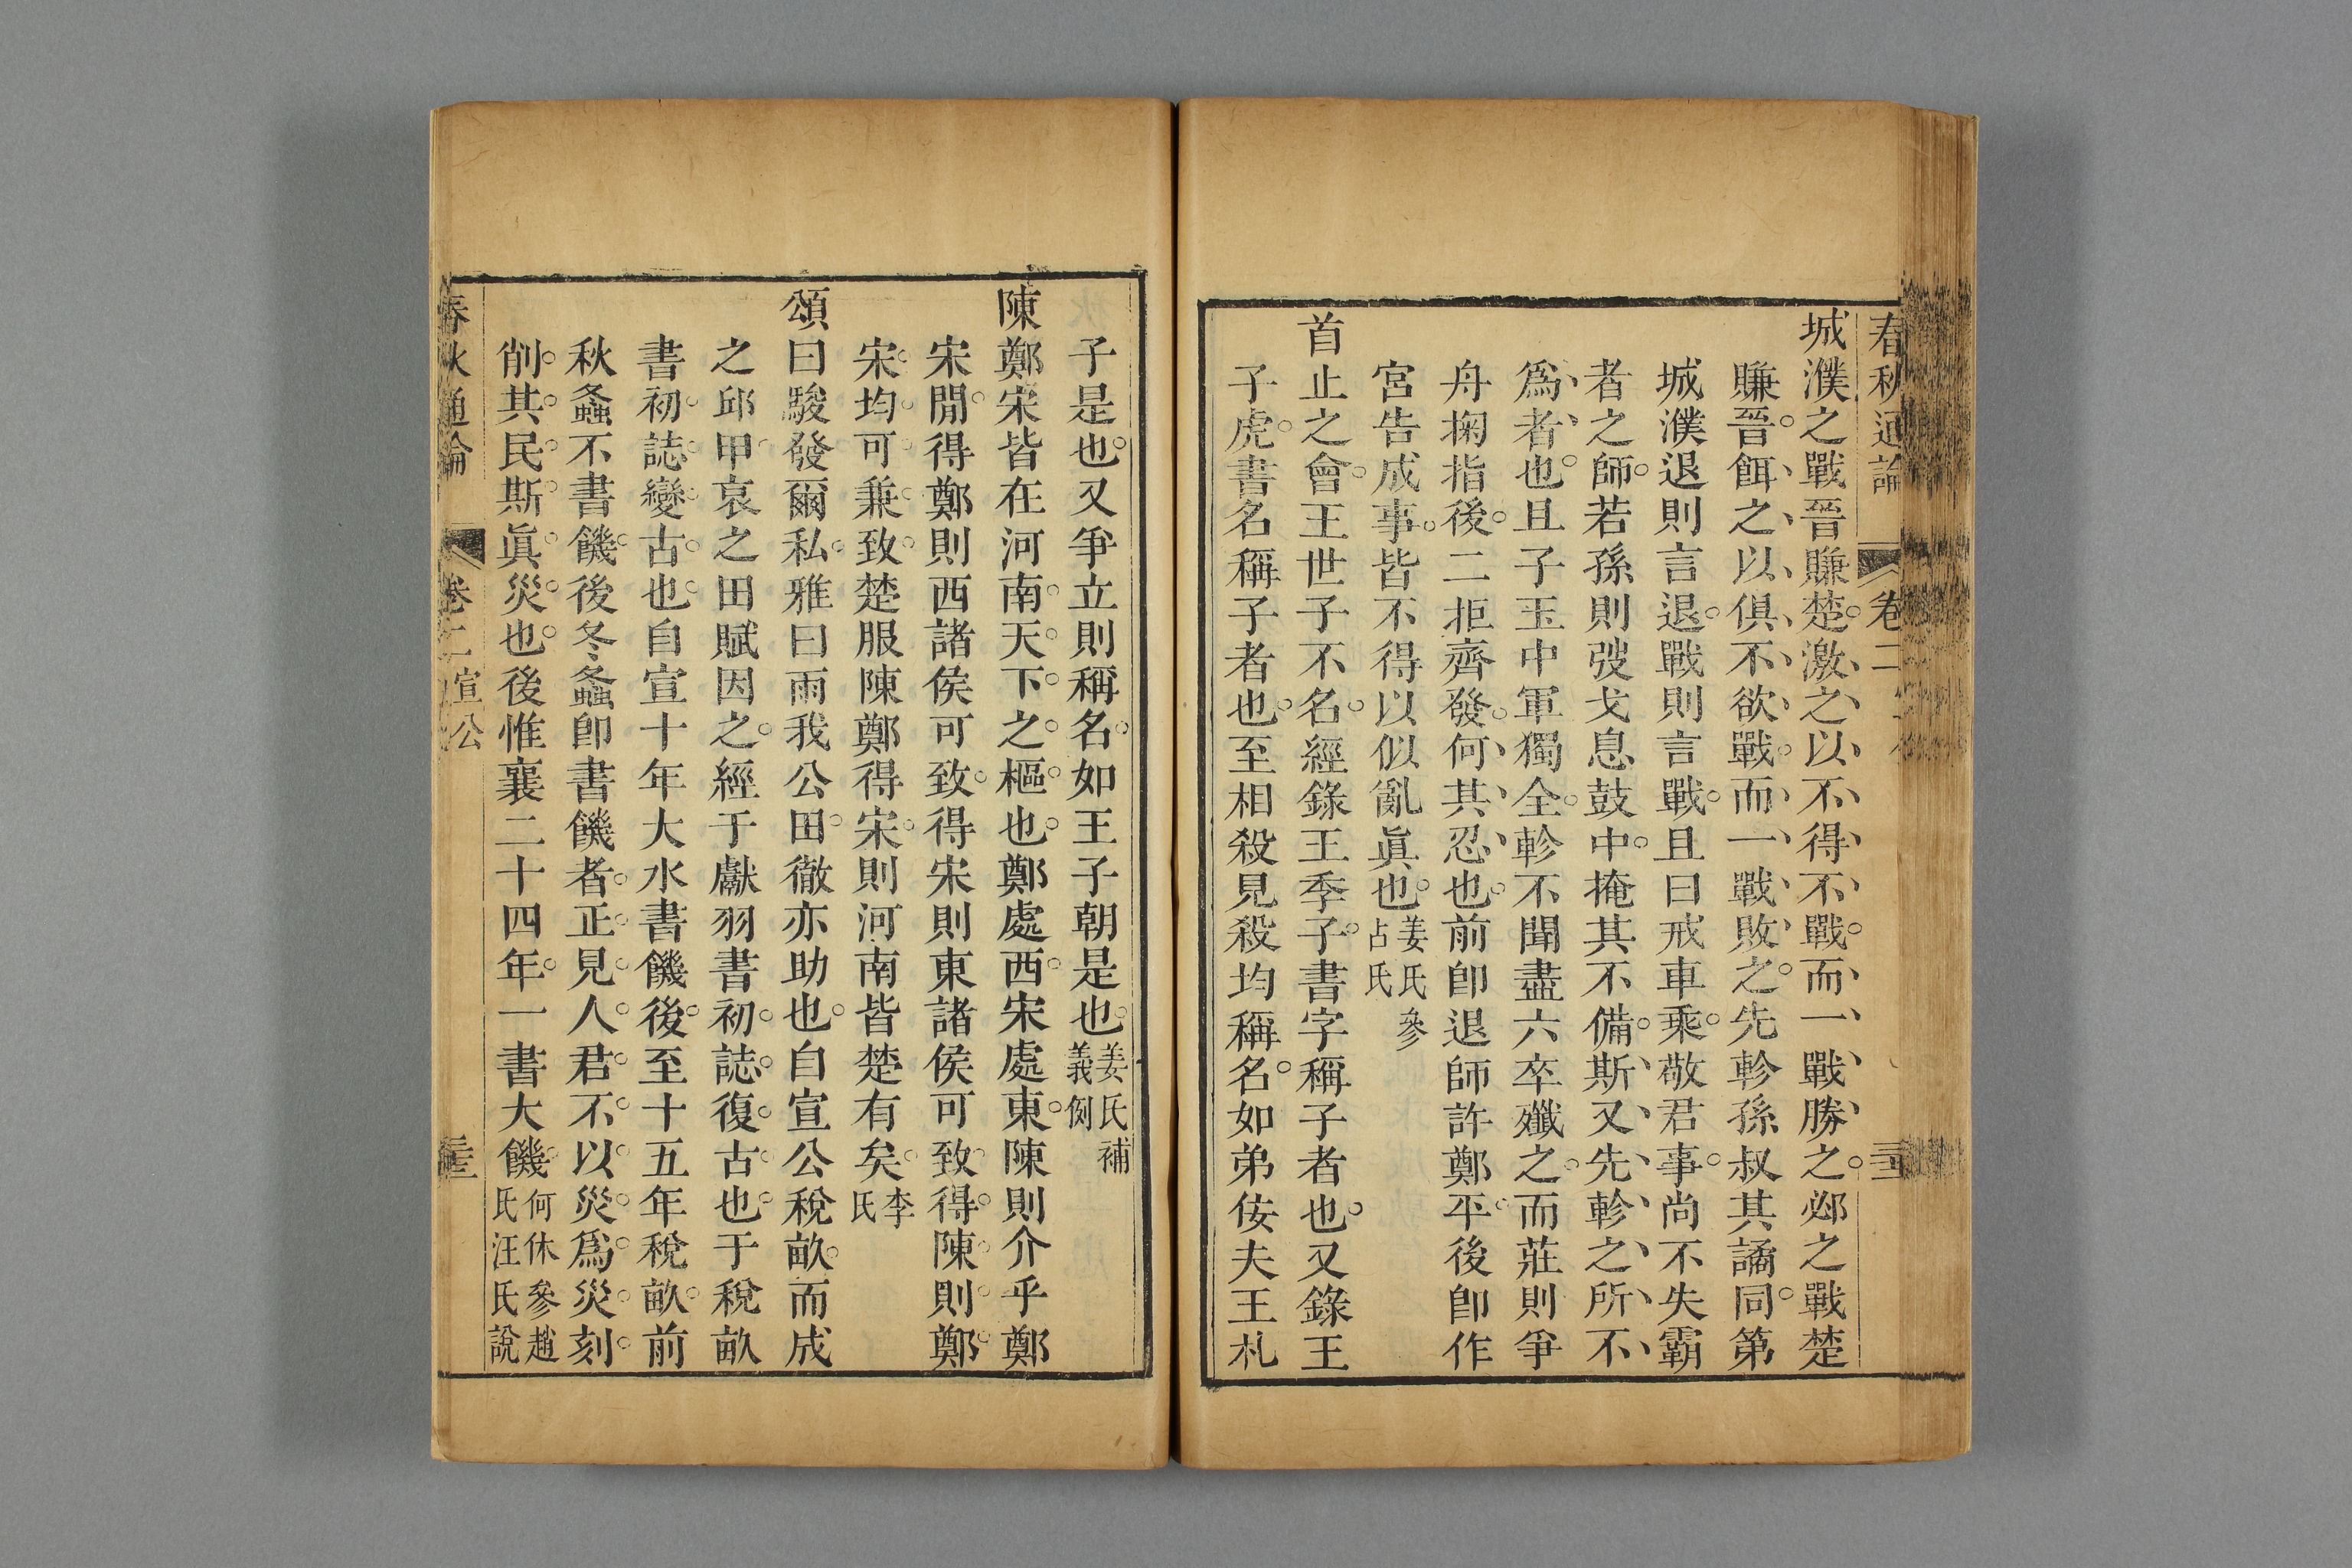 春秋通論 卷二
城濮之戰晉賺楚激之以不得不戰而一戰勝之邲之戰楚
賺晉餌之以俱不欲戰而一戰敗之先軫孫叔其譎同第
城濮退則言退戰則言戰且曰戒車乘敬君事尚不失霸
者之師若孫則弢戈息鼓中掩其不備斯又先軫之所不
爲者也且子玉中軍獨全軫不聞盡六卒殲之而莊則爭
舟掬指後二拒齊發何其忍也前卽退師許鄭平後卽作
宮告成事皆不得以似亂眞也姜氏參占氏
首止之會王世子不名經錄王季子書字稱子者也又錄王
子虎書名稱子者也至相殺見殺均稱名如弟佞夫王札
子是也又爭立則稱名如王子朝是也姜氏補義例
陳鄭宋皆在河南天下之樞也鄭處西宋處東陳則介乎鄭
宋閒得鄭則西諸侯可致得宋則東諸侯可致得陳則鄭
宋均可兼致楚服陳鄭得宋則河南皆楚有矣李氏
頌曰駿發爾私雅曰雨我公田徹亦助也自宣公稅畝而成
之邱甲哀之田賦因之經于獻羽書初誌復古也于稅畝
書初誌變古也自宣十年大水書饑後至十五年稅畝前
秋螽不書饑後冬螽卽書饑者正見人君不以災爲災刻
削其民斯眞災也後惟襄二十四年一書大饑何休參趙氏汪氏說
春秋通論 卷二宣公